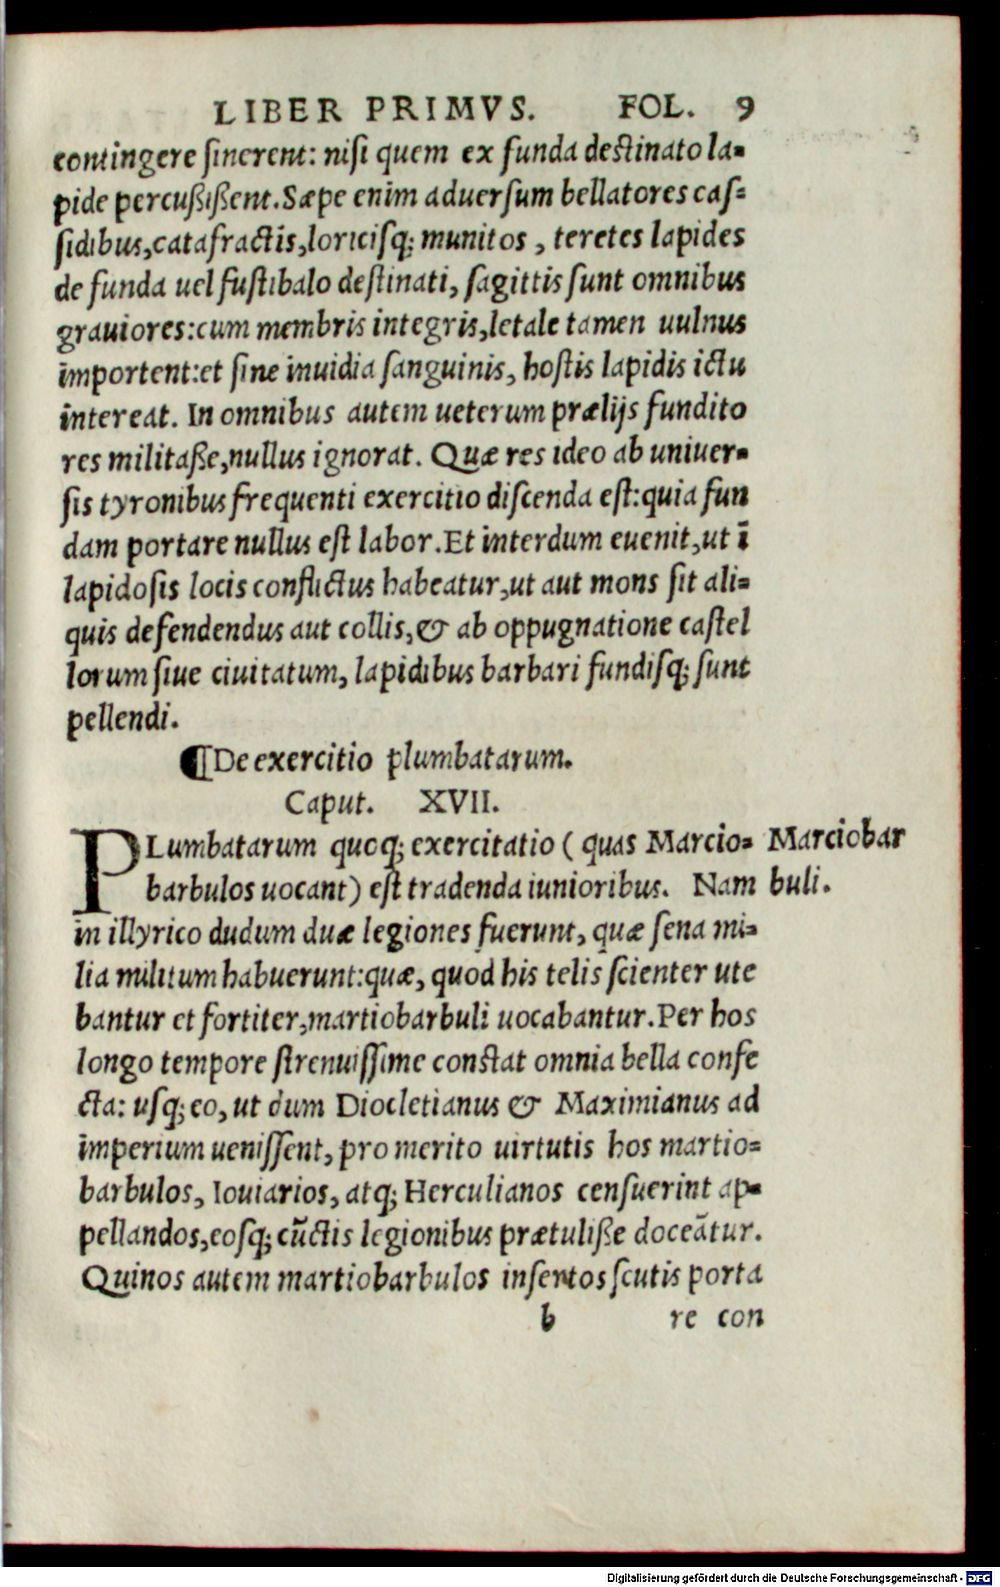 LIBER PRIMVS. FOL. 9
contingere sinerent: nisi quem ex funda destinato la-
pide percußißent. Sæpe enim aduersum bellatores cas-
sidibus, catafractis, loricisq; munitos, teretes lapides
de funda uel fustibalo destinati, sagittis sunt omnibus
grauiores: cum membris integris, letale tamen uulnus
importent: et sine inuidia sanguinis, hostis lapidis ictu
intereat. In omnibus autem ueterum prælijs fundito
res militaße, nullus ignorat. Quæ res ideo ab uniuer-
sis tyronibus frequenti exercitio discenda est: quia fun
dam portare nullus est labor. Et interdum euenit, ut ī
lapidosis locis conflictus habeatur, ut aut mons sit ali-
quis defendendus aut collis, & ab oppugnatione castel
lorum siue ciuitatum, lapidibus barbari fundisq; sunt
pellendi.
¶De exercitio plumbatarum.
Caput. XVII.
PLumbatarum quoq; exercitatio (quas Marcio- Marciobar
barbulos uocant) est tradenda iunioribus. Nam buli.
in illyrico dudum duæ legiones fuerunt, quæ sena mi-
lia militum habuerunt: quæ, quod his telis scienter ute
bantur et fortiter, martiobarbuli uocabantur. Per hos
longo tempore strenuissime constat omnia bella confe
cta: usq; eo, ut dum Diocletianus & Maximianus ad
imperium uenissent, pro merito uirtutis hos martio-
barbulos, Iouiarios, atq; Herculianos censuerint ap-
pellandos, eosq; cūctis legionibus prætuliße doceātur.
Quinos autem martiobarbulos insertos scutis porta
b re con
Digitalisierung gefördert durch die Deutsche Forschungsgemeinschaft - DFG